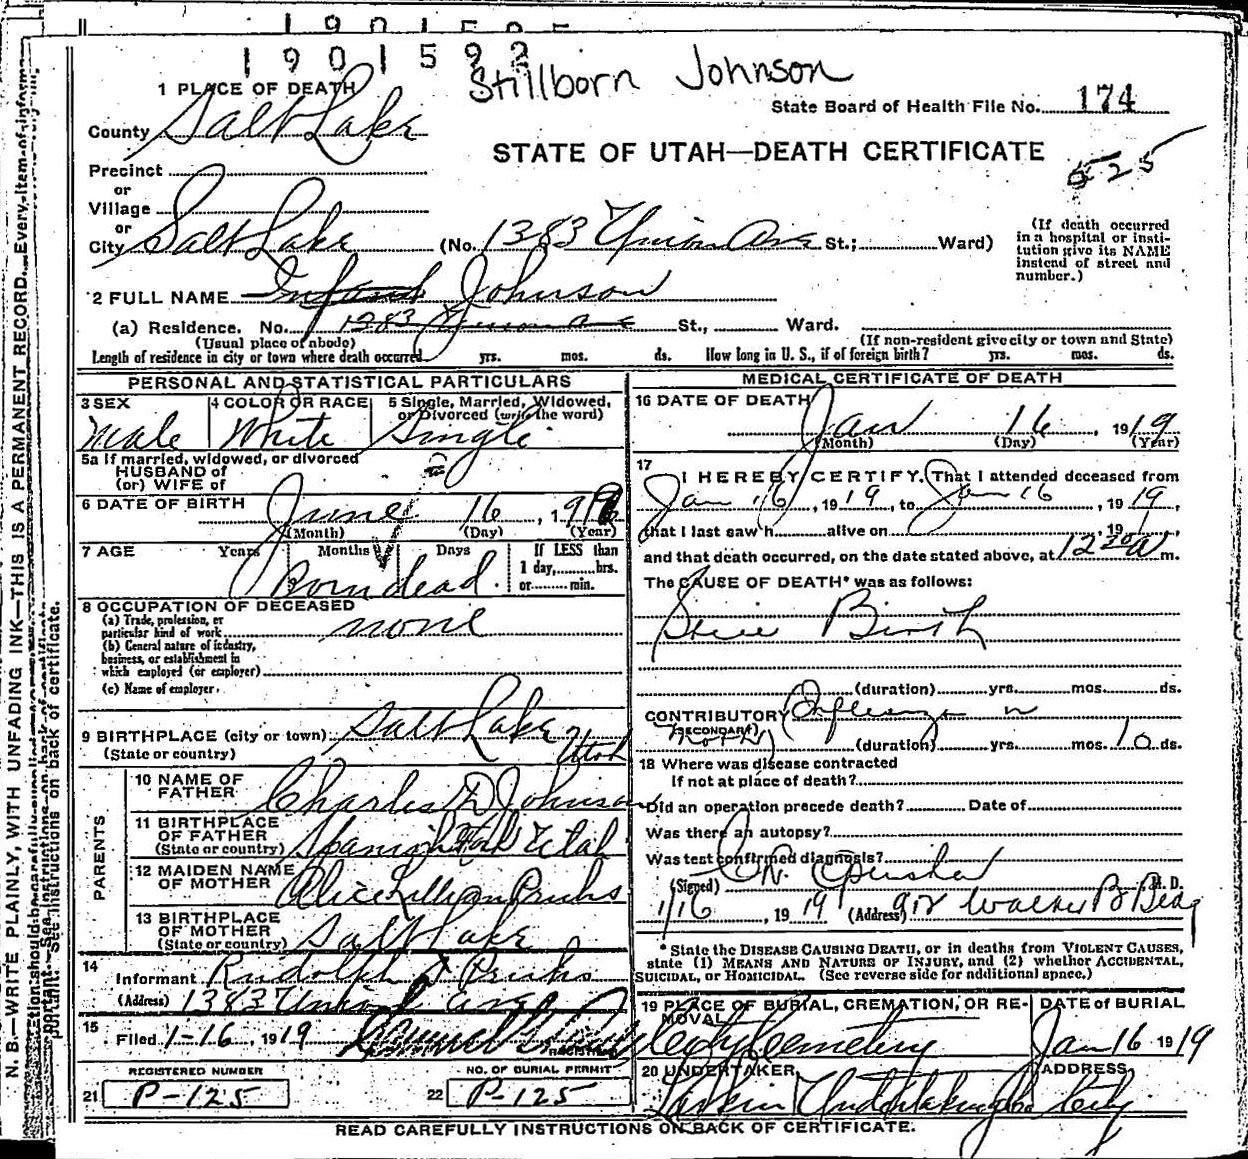 1901592
Stillborn Johnson
1 PLACE OF DEATH
State Board of Health File No. 174
County Salt Lake
STATE OF UTAH—DEATH CERTIFICATE
525
Precinct
or
Village
or
City Salt Lake (No. 1383 Union Ave St.; Ward)
(If death occurred in a hospital or insti-
tution give its NAME
instead of street and
number.)
2 FULL NAME Infant Johnson
(a) Residence. No. 1383 Union Ave St., Ward.
(Usual place of abode) (If non-resident give city or town and State)
Length of residence in city or town where death occurred yrs. mos. ds. How long in U. S., if of foreign birth? yrs. mos. ds.
PERSONAL AND STATISTICAL PARTICULARS
3 SEX 4 COLOR OR RACE 5 Single, Married, Widowed,
or Divorced (write the word)
Male White Single
5a If married, widowed, or divorced
HUSBAND of
(or) WIFE of
6 DATE OF BIRTH
June 16, 191
(Month) (Day) (Year)
7 AGE Years Months Days If LESS than
1 day, hrs.
or min.
Born dead.
8 OCCUPATION OF DECEASED
(a) Trade, profession, or
particular kind of work none
(b) General nature of industry,
business, or establishment in
which employed (or employer)
(c) Name of employer
9 BIRTHPLACE (city or town) Salt Lake
(State or country) Utah
PARENTS
10 NAME OF
FATHER Charles D Johnson
11 BIRTHPLACE
OF FATHER
(State or country) Spanish Fork Utah
12 MAIDEN NAME
OF MOTHER Alice Lillian
13 BIRTHPLACE
OF MOTHER
(State or country) Salt Lake
14
Informant Rudolph
(Address) 1383 Union Ave
15
Filed 1-16, 1919
REGISTRAR
REGISTERED NUMBER
21 P-125
NO. OF BURIAL PERMIT
22 P-125
MEDICAL CERTIFICATE OF DEATH
16 DATE OF DEATH
Jan 16, 1919
(Month) (Day) (Year)
17
I HEREBY CERTIFY, That I attended deceased from
Jan 16, 1919, to Jan 16, 1919,
that I last saw h alive on 19
and that death occurred, on the date stated above, at 12 20 a m.
The CAUSE OF DEATH* was as follows:
Still Birth
(duration) yrs. mos. ds.
CONTRIBUTORY Influenza in
(SECONDARY)
Mother (duration) yrs. mos. 10 ds.
18 Where was disease contracted
If not at place of death?
Did an operation precede death? Date of
Was there an autopsy?
Was test confirmed diagnosis?
(Signed) M. D.
1/16, 1919 (Address) 912 Walker B Bldg
* State the DISEASE CAUSING DEATH, or in deaths from VIOLENT CAUSES,
state (1) MEANS AND NATURE OF INJURY, and (2) whether ACCIDENTAL,
SUICIDAL, or HOMICIDAL. (See reverse side for additional space.)
19 PLACE OF BURIAL, CREMATION, OR RE-
MOVAL
City Cemetery
DATE of BURIAL
Jan 16 1919
20 UNDERTAKER
Larkin Undertaking Co
ADDRESS
City
READ CAREFULLY INSTRUCTIONS ON BACK OF CERTIFICATE.
N. B—WRITE PLAINLY, WITH UNFADING INK—THIS IS A PERMANENT RECORD. Every item of inform-
See instructions on back of certificate.